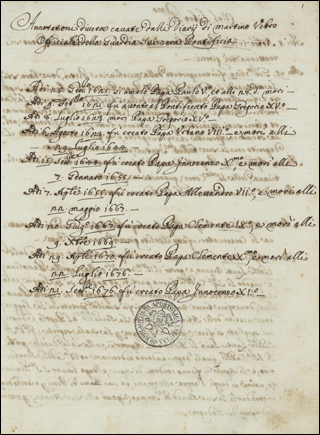 Annotationi diverse cavate dalli Diarij di martino Vebro
Officiale della Guardia Suizzera Pontificia
Adi 21. 1621 si amalò Papa Paulo V. et alli 28. d. morì
Adi 9. 1621 fu assonto al Pontificato Papa Gregorio XV.
Adi 8. Luglio 1623 morì Papa Gregorio XV.
Adi 6. Agosto 1623 fù creato Papa Urbano VIII. e morì alli
29. Luglio 1644
Adi 1644 fù creato Papa Innocenzo X. e morì alli
7. Gennaro 1655.
Adi 7. Aple 1655 fù creato Papa Allessandro VII. e morì alli
22. maggio 1667.
Adi 20. Giug. 1667 fù creato Papa Clemente IX. e morì alli
9. Xbre 1669.
Adi 29. Aple 1670 fù creato Papa Clemente X. e morì alli
22. Luglio 1676.
Adi 21. 1676 fù creato Papa Innocenzo XI.